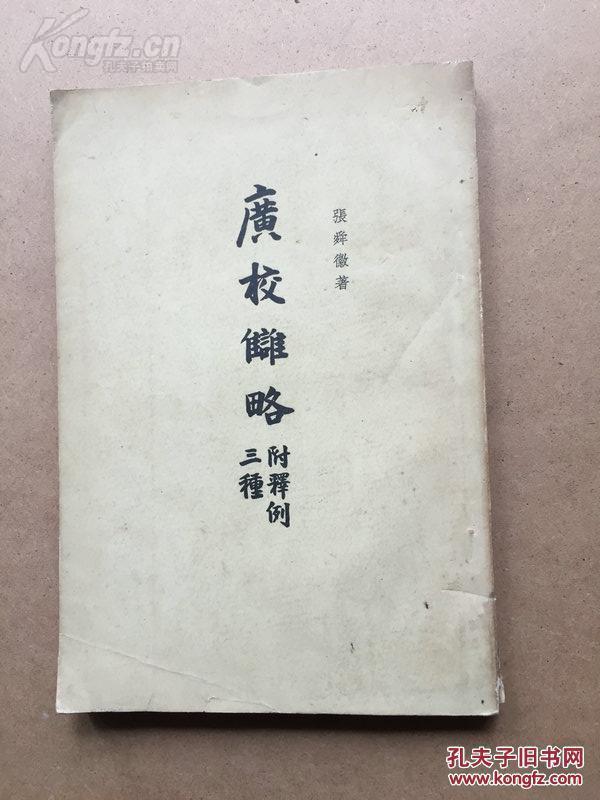 Kongfz.cn
孔夫子拍卖网
張舜徽著
廣校讎略
附釋例
三種
孔夫子旧书网
www.kongfz.com